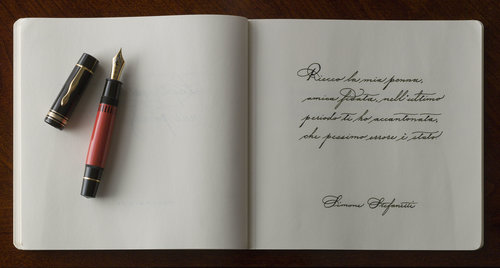 Riecco la mia penna,
amica fidata, nell'ultimo
periodo te ho accantonata,
che pessimo errore è stato
Simone Stefanetti